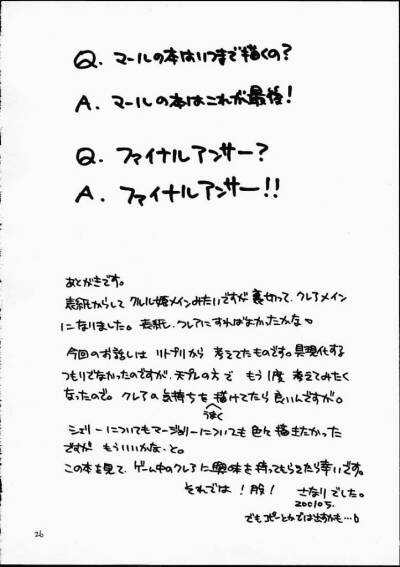 Q. マールの本はいつまで描くの？
A. マールの本はこれが最後！
Q. ファイナルアンサー？
A. ファイナルアンサー！！
あとがきです。
表紙からして クルル姫メインみたいですが 裏切って、クレアメイン
になりました。表紙、クレアにすればよかったかな。
今回のお話しは リトプリから 考えてたものです。具現化する
つもりでなかったのですが、天プレの方で もう1度 考えてみたく
なったので。クレアの気持ちを 描けてたら 良いんですが。
うまく
シェリーについてもマージョリーについても 色々 描きたかった
ですが もういいかな…と。
この本を見て、ゲーム中のクレアに興味を持ってもらえたら幸いです。
それでは！ さなりでした。
2001.05.
でもコピーとかでは出すかも…
26